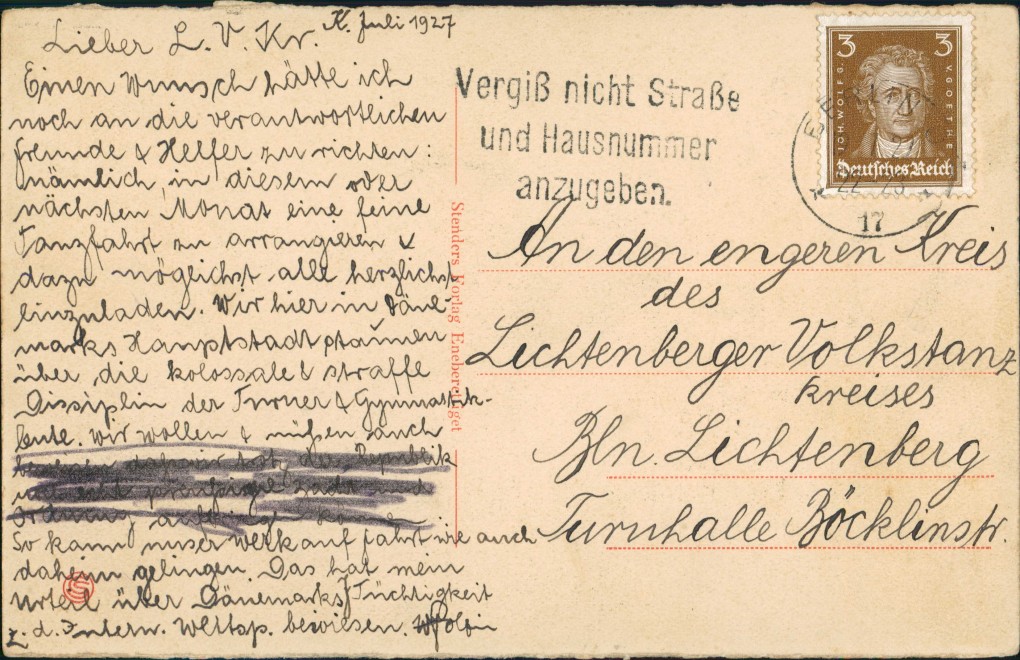 K. Juli 1927
Lieber L. V. Kr.
Einen Wunsch hätte ich
noch an die verantwortlichen
Freunde & Helfer zu richten:
nämlich, in diesem oder
nächsten Monat eine feine
Tanzfahrt zu arrangieren &
dazu möglichst alle herzlichst
einzuladen. Wir hier in Däne-
marks Hauptstadt staunen
über die kolossale & straffe
Dissiplin der Turner & Gymnastik-
leute. Wir wollen & müßen auch
der Republik
So kann unser Werk auf Fahrt wie auch
daheim gelingen. Das hat mein
Urteil über Dänemarks Tüchtigkeit
z. d. Intern. Wettsp. bewiesen.
Stenders Forlag Eneberettiget
Vergiß nicht Straße
und Hausnummer
anzugeben.
3 3
JOH. WOLFG. V. GOETHE
Deutsches Reich
17
An den engeren Kreis
des
Lichtenberger Volkstanz
kreises
Bln. Lichtenberg
Turnhalle Böcklinstr.